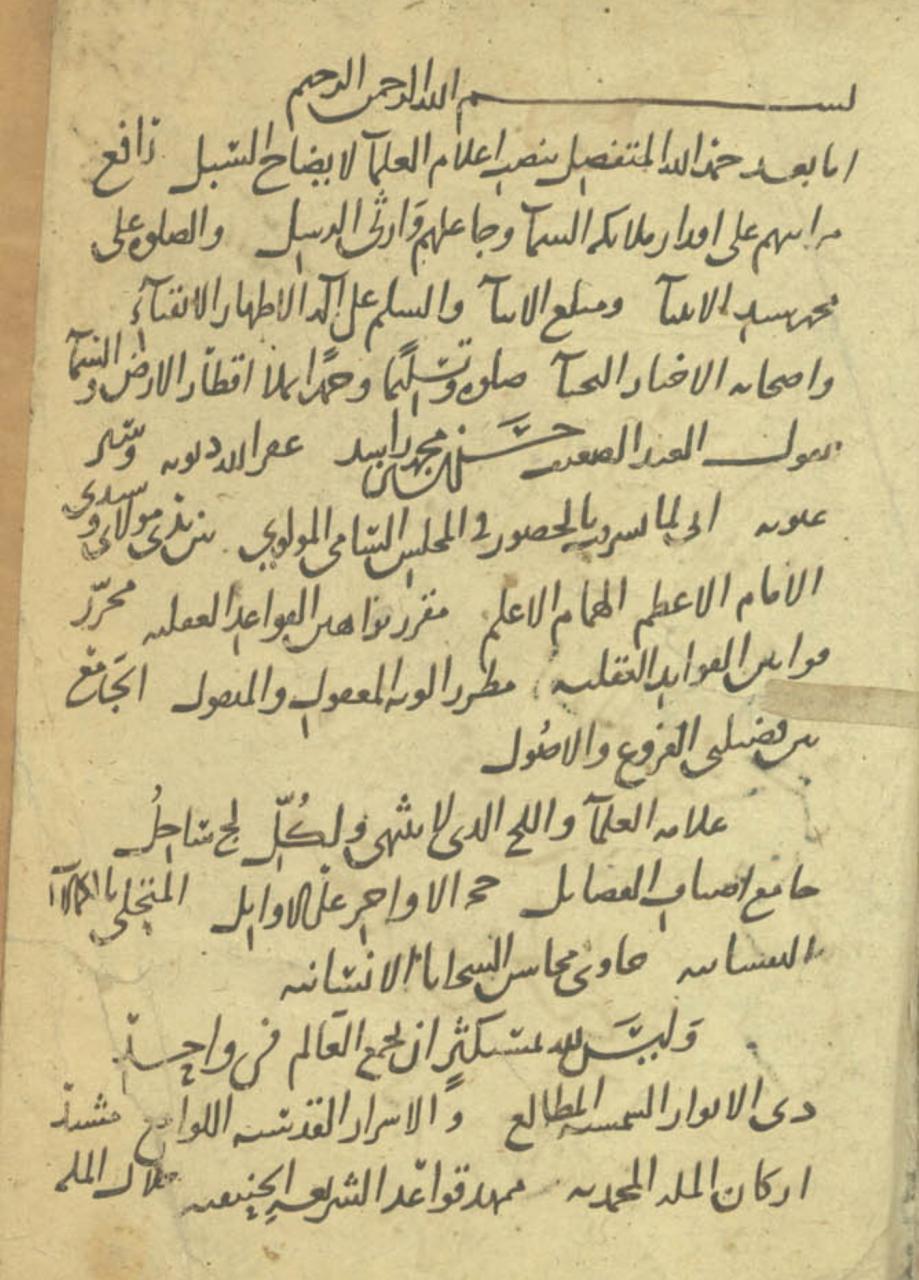 بسم الله الرحمن الرحيم
اما بعد حمد الله المتفضل بنصب اعلام العلمآ لايضاح السّبل رافع
مراتبهم على اقدار ملائكه السمآ وجاعلهم وَارثى الرسل والصلوه على
محمد سيد الانبيآ ومبلع الانبآ والسلم على آله الاطهار الاتقيآء
واصحابه الاخيار النجبآ صلوه وتسليمًا وحمدًا يملا اقطار الارض والسّمآ
يقول العبد الضعيف حَسَن بن محمد بن راشد غفر الله ذنوبه وستر
عيوبه انى لما تشرفت بالحضور فى المجلس السّامى المولوى بين يدى مولاى وسيدى
الامام الاعظم الهمام الاعلم مقرر براهين القواعد العقليه محرّر
قوانين الفوايد النقليه مطرز الويه المعقول والمنقول الجَامع
بين فضيلتى الفروع والاصُول
علامه العلمآ واللج الذى لا ينتهى ولكُلّ لج سَاحِلُ
جامع اصناف الفضايل حجه الاواخِر على الاوايل المتحلى بالكمالات
النفسانيه حاوى محاسن السجايا الانسَانيه
وَليسَ لله بمستكثرٍ ان يجمع العَالم فى واحِدٍ
ذى الانوار الشمسيه المطالع والاسرار القدسيه اللوامع مشيد
اركان المله المحمديه ممهد قواعد الشريعهِ الحنيفيه جلال المله